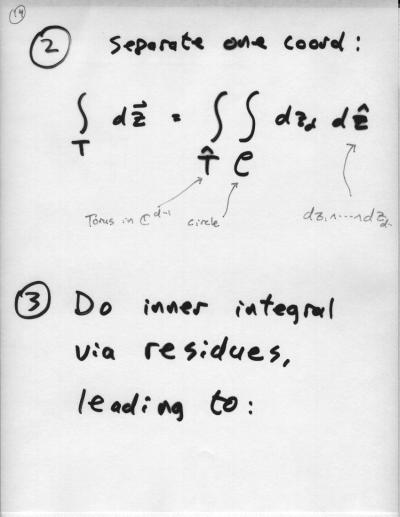 14
2 separate one coord:
∫_T d\vec{z} = ∫_{\hat{T}} ∫_C dz_d d\hat{z}
Torus in ℂ^{d-1} circle dz_1 ∧ ... ∧ dz_{d-1}
3 Do inner integral
via residues,
leading to: